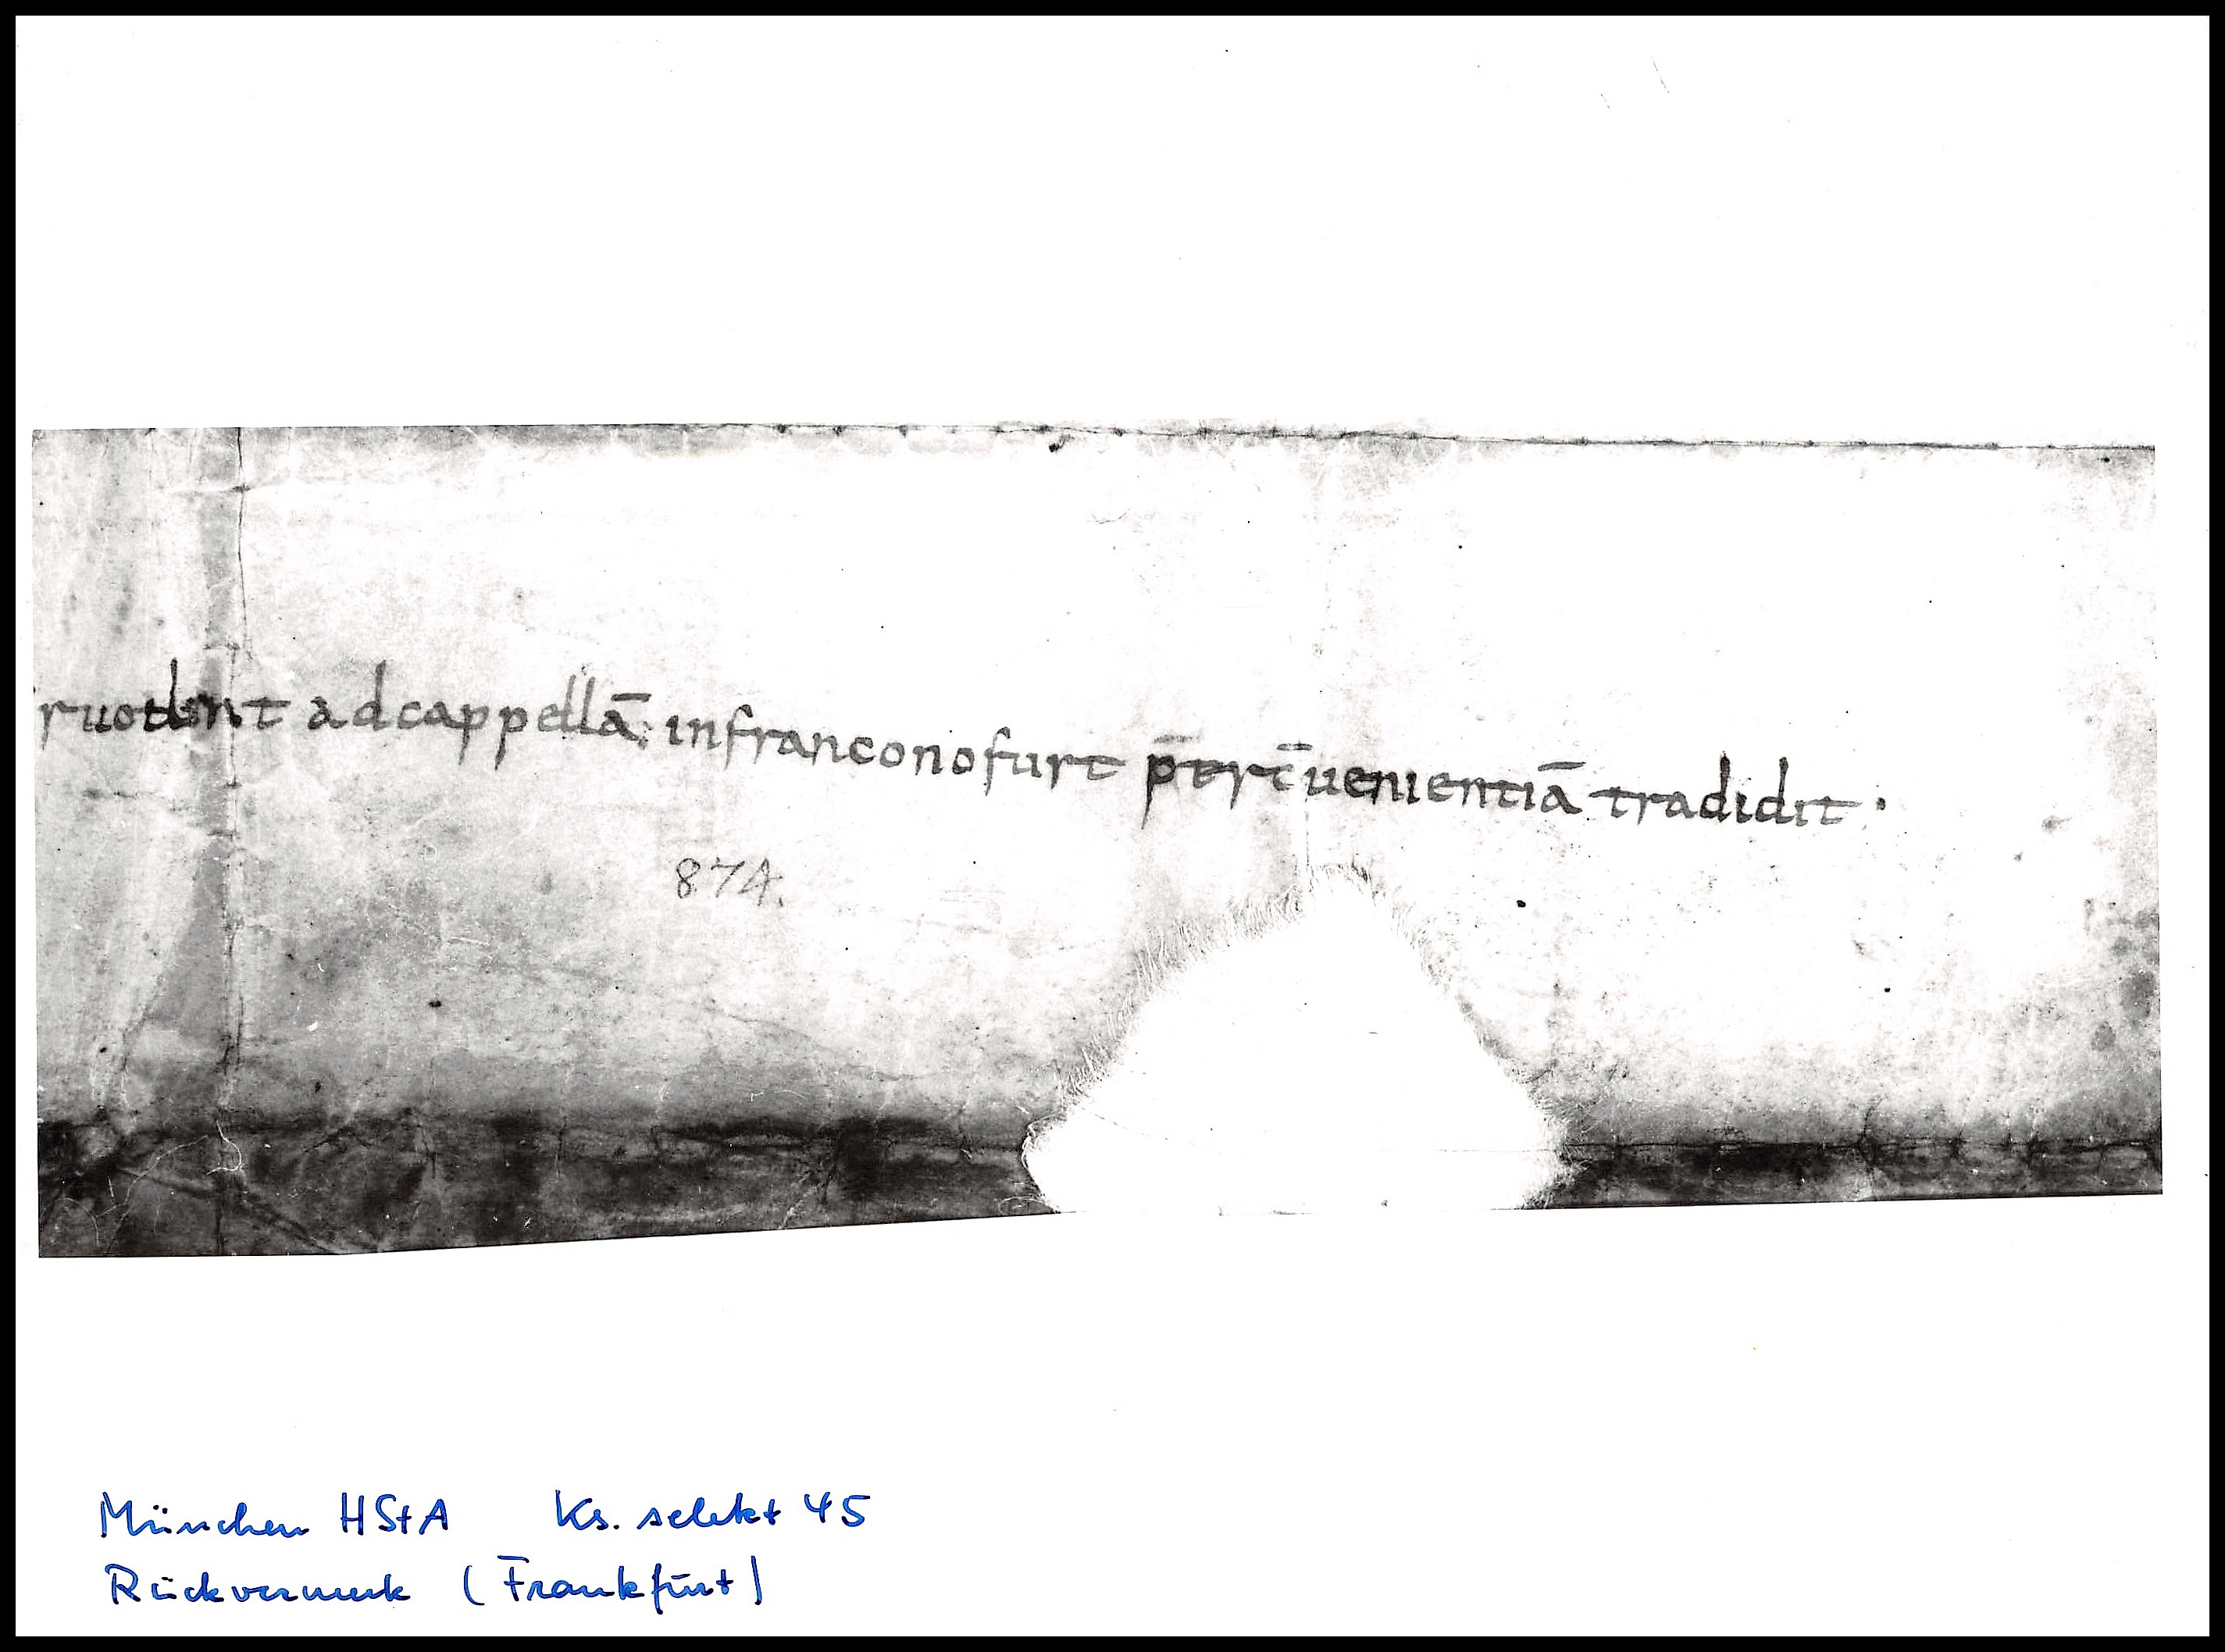 ruotlint adcappellā; infranconofurt p̄ter c̄uenientiā tradidit ·
874.
München HStA Ks. selekt 45
Rückvermerk (Frankfurt)